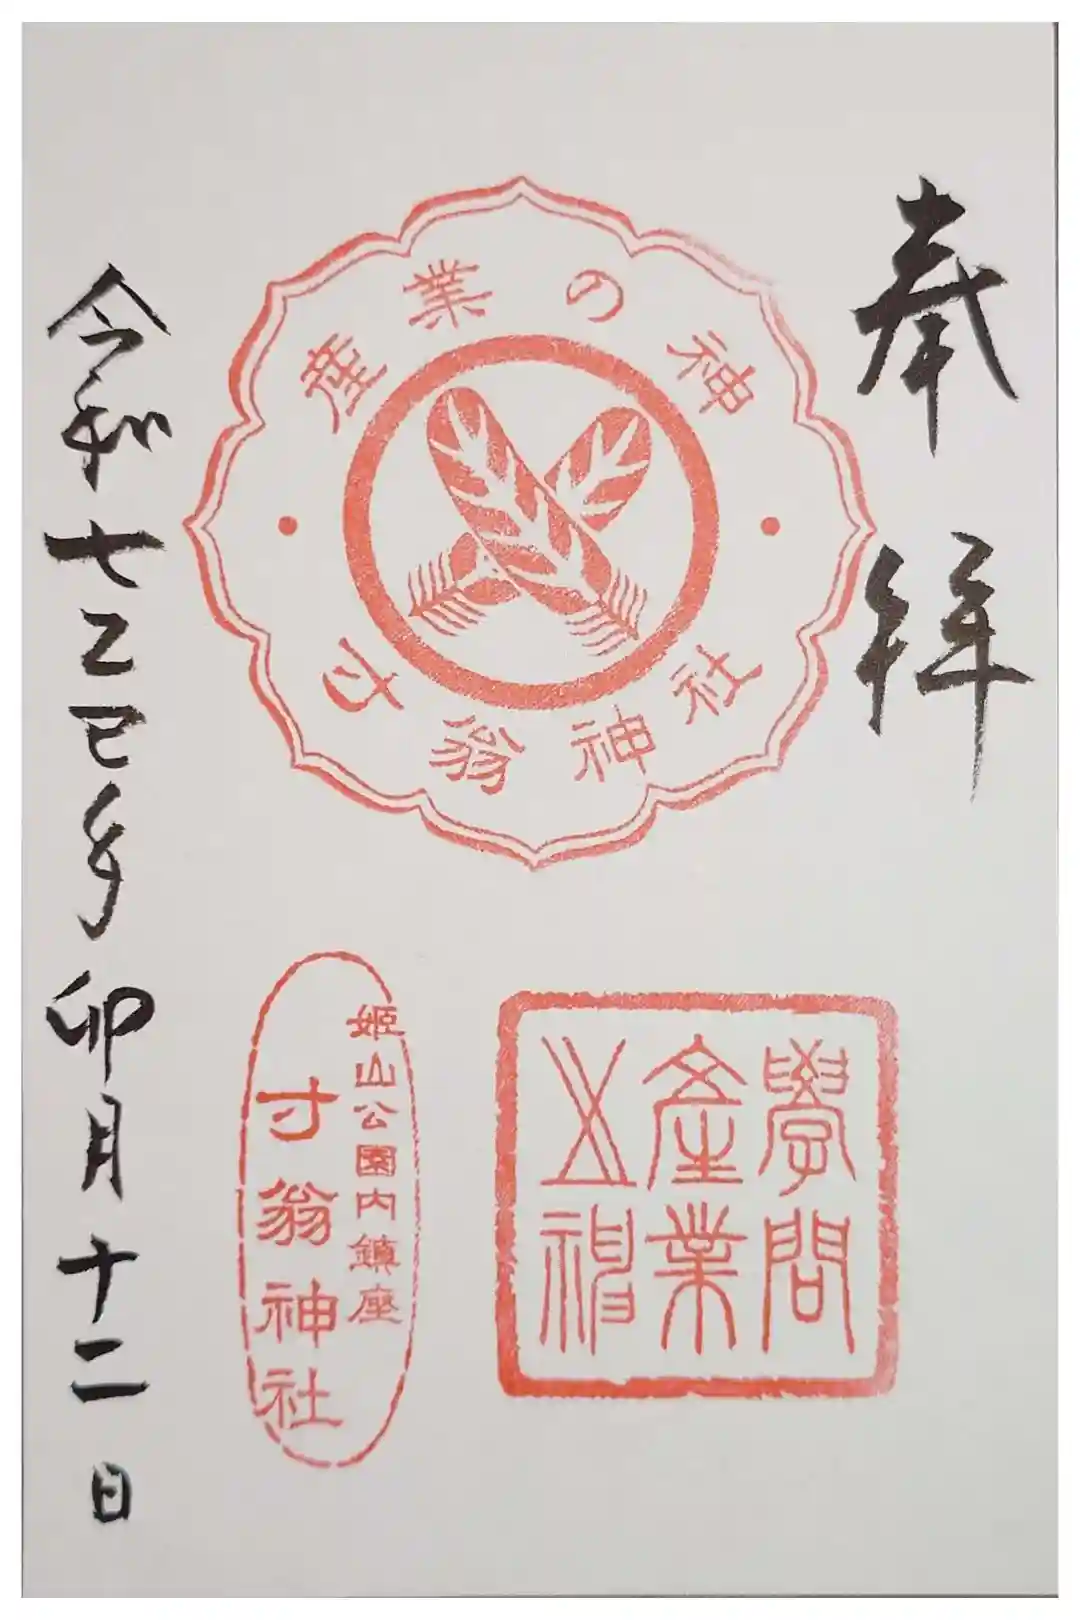 奉拝
産業の神
寸翁神社
學問
產業
之神
姫山公園内鎮座
寸翁神社
令和七乙巳年卯月十二日